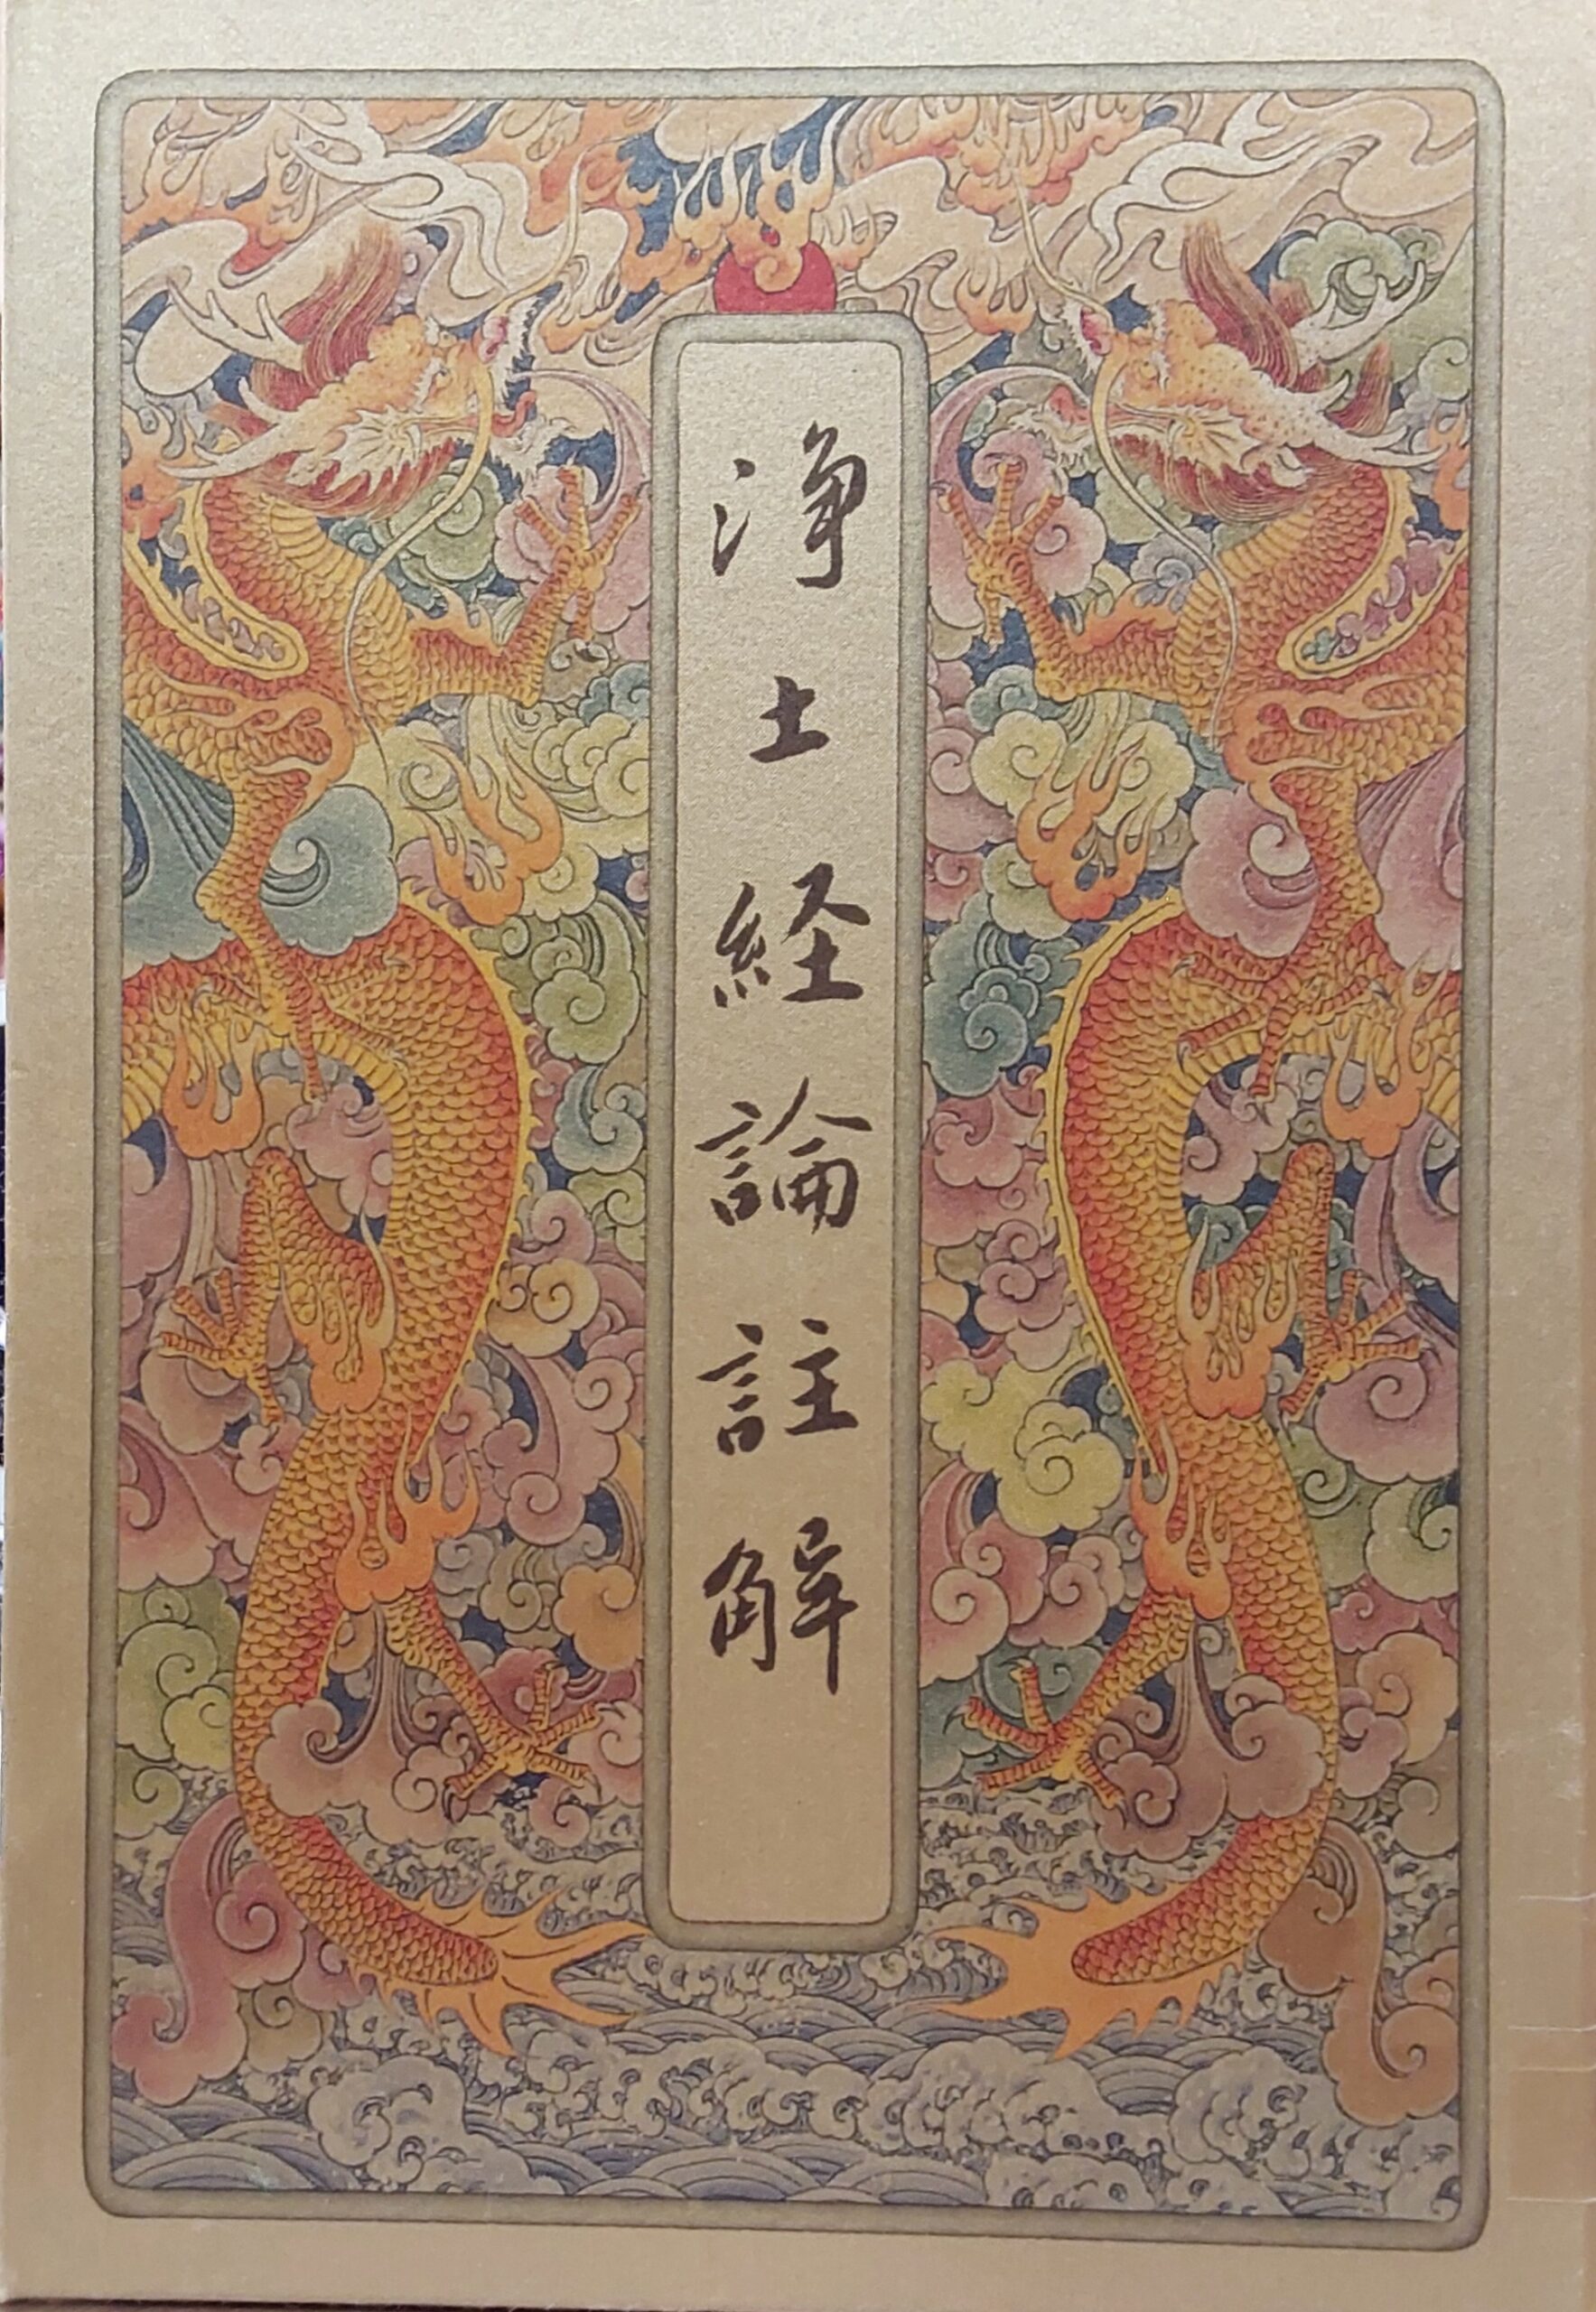 浄土経論註解